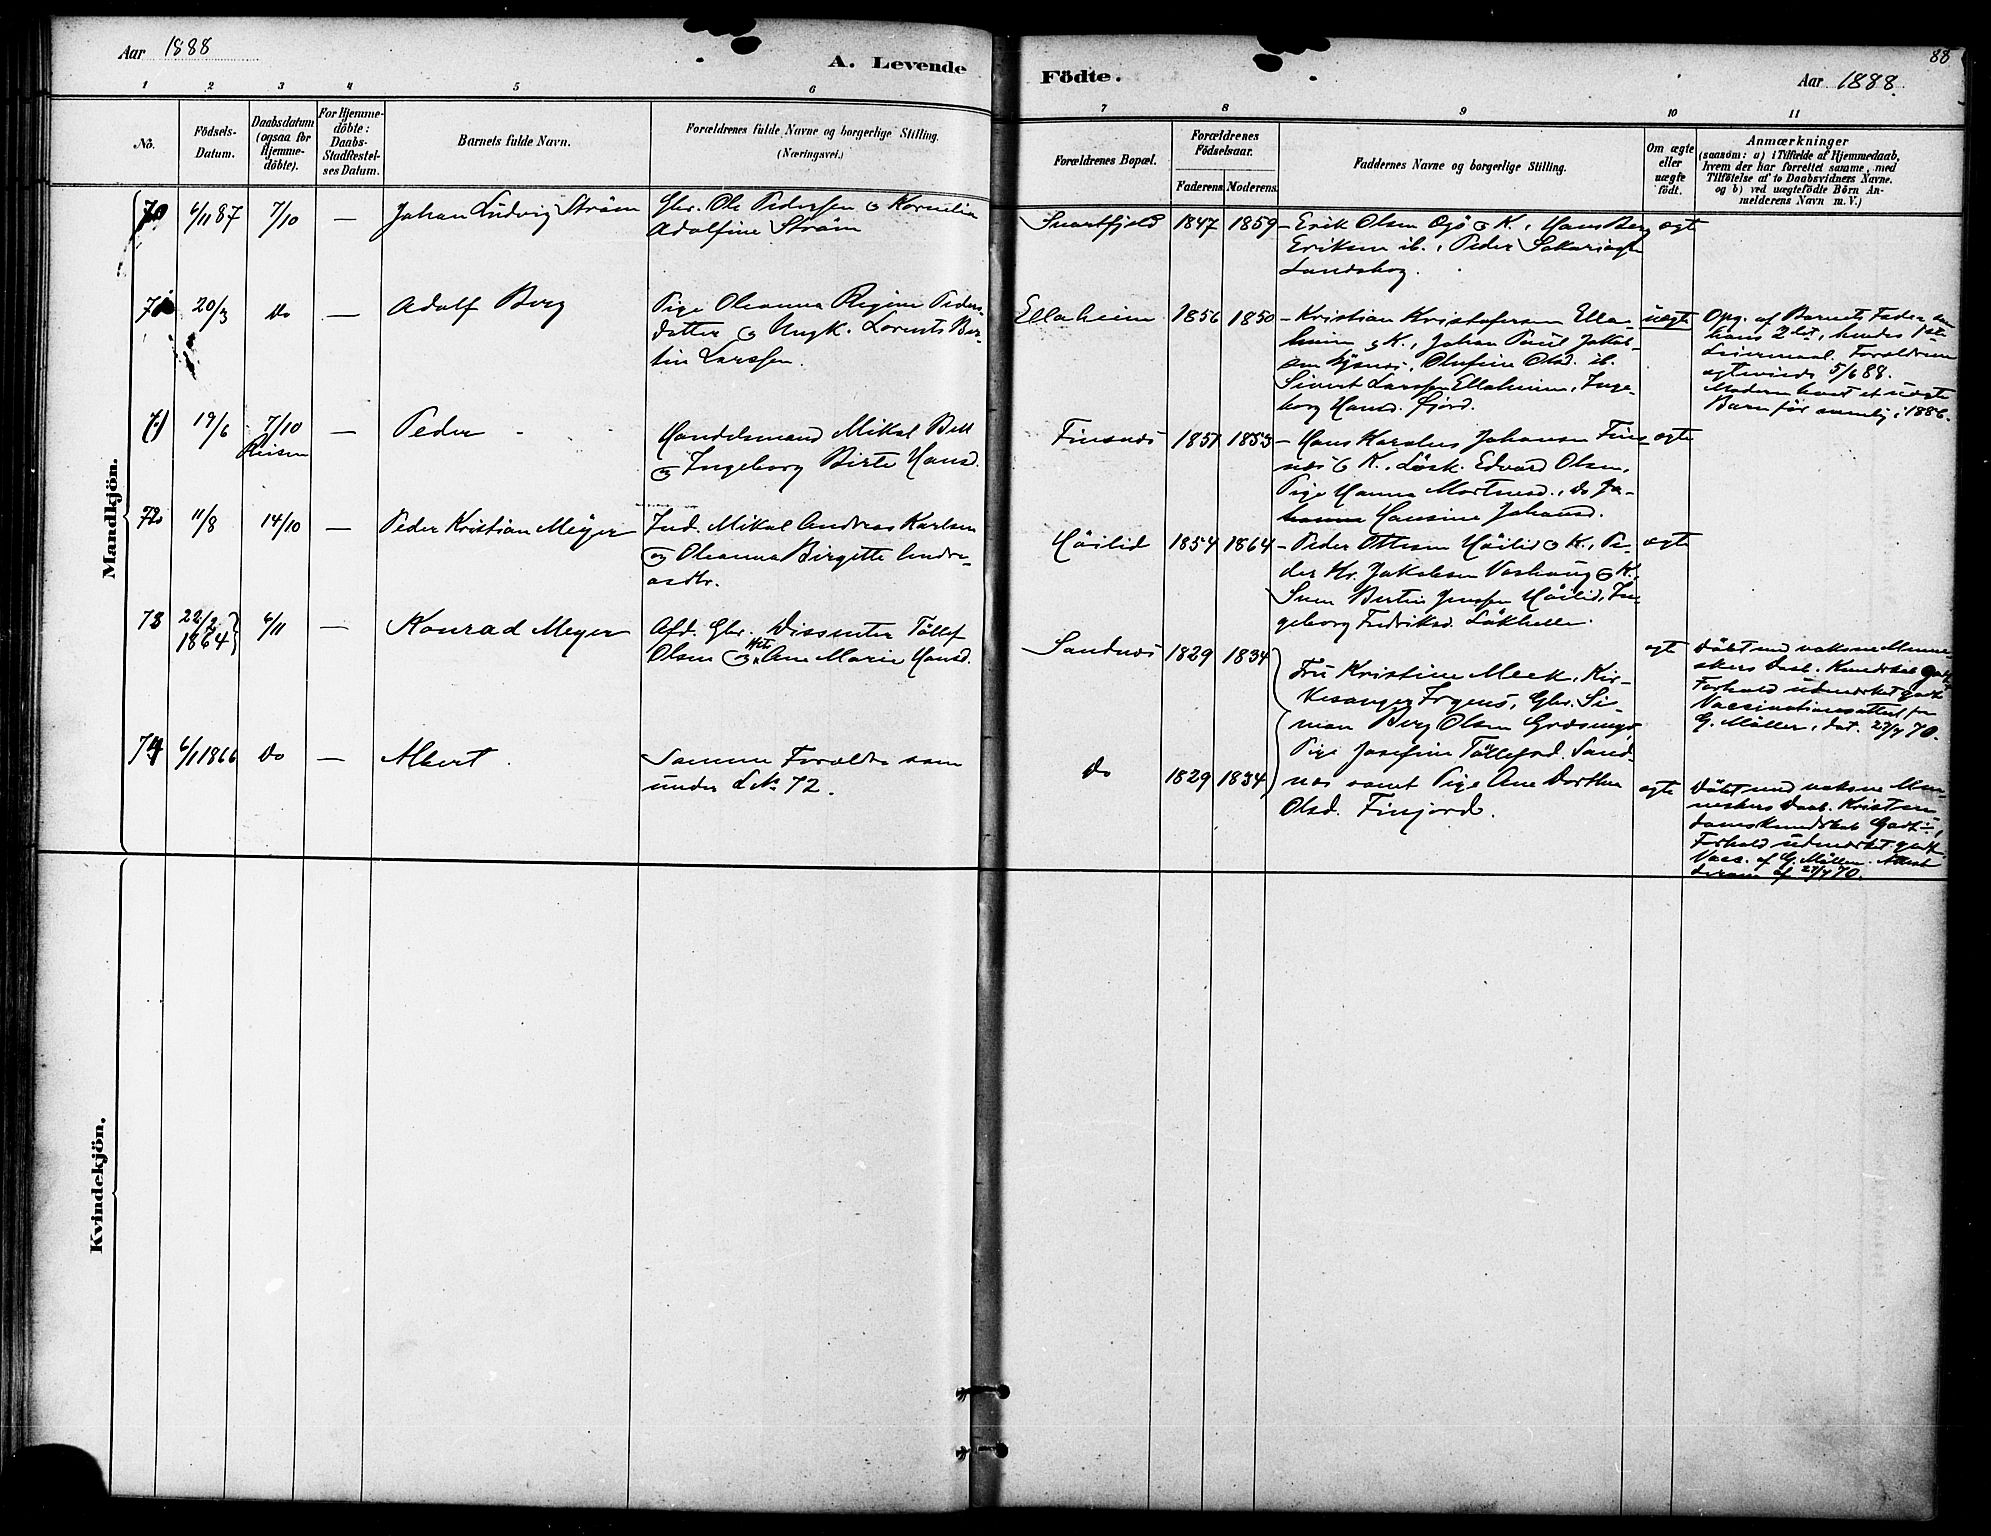 Aar 1888
A. Levende
Födte.
Aar 1888.
88
1
2
3
4
5
6
7
8
9
10
11
No.
Födsels-
Datum.
Daabsdatum
(ogsaa for
Hjemme-
döbte).
For Hjemme-
döbte:
Daabs-
Stadfæstel-
ses Datum.
Barnets fulde Navn.
Forældrenes fulde Navne og borgerlige Stilling.
(Næringsvei.)
Forældrenes Bopæl.
Forældrenes
Födselsaar.
Faderens
Moderens.
Faddernes Navne og borgerlige Stilling.
Om ægte
eller
uægte
født.
Anmærkninger
(saasom: a) i Tilfælde af Hjemmedaab,
hvem der har forrettet samme, med
Tilföielse af to Daabsvidners Navne.
og b) ved uægtefødte Börn An-
melderens Navn m. V.)
Mandkjön.
70
6/11 87
7/10
—
Johan Ludvig Ström
Gbr. Ole Pedersen & Kornelia
Adolfine Ström
Svartfjeld
1847
1859
– Erik Olsen Ogö & K., Hans Berg
Eriksen ib., Peder Sakariasen
Landskog.
ægt
20/3
Do
—
Adolf Berg
Pige Oleanna Regine Peders-
datter & Ungk. Lorents Ber-
tin Larssen.
Ellaheim
1856
1850
– Kristian Kristofersen Ella-
heim & K., Johan Paul Jakob-
sen Olufine Olsd. ib.
Sivert Larssen Ellaheim, Inge-
borg Hansd. Fjord.
uægte
Opg. af Barnets Fader
hans 2det, hendes 1ste
Leiermaal. Forældrene
ægteviede 5/6 88.
Moderen havt et uægte
Barn før nemlig i 1886.
19/6
7/10
Reisen
—
Peder
Handelsmand Mikal Bell
& Ingeborg Birte Hansd.
Finsnes
1851
1853
– Hans Karelius Johansen Fins-
nes & K., Løsk. Edvard Olsen,
Pige Hanna Mortensd., do Jo-
hanna Hansine Johansd.
ægte
72
11/8
14/10
—
Peder Kristian Meyer
Ind. Mikal Andreas Karlsen
& Oleanna Birgitte Andre-
asdtr.
Höilid
1854
1864
– Peder Ottesen Höilid & K., Pe-
der Kr. Jakobsen Vashaug & K.,
Sven Bertin Jenssen Höilid, In-
geborg Fredriksd. Låkhelle.
ægte
73
22/2
1864
6/11
—
Konrad Meyer
Afd. Gbr. Dissenter Tollef
Olsen & Htr Ane Marie Hansd.
Sandnes
1829
1834
Fru Kristine Meek, Kir-
kesanger Irgens, Gbr. Si-
mon Berg Olsen Græsings,
Pige Josefine Tollefsd. Sand-
nes samt Pige Ane Dorthea
Olsd. Finjord.
ægt
Döbt med voksne Menne-
skers Daab. Kundskab godt
Forhold udmærket godt
Vaccinationsattest fra
G. Möller, dat. 27/7 70.
74
6/1 1866
Do
—
Albert
Samme Forældre som
under L. No 72.
Do
1829
1834
ægte
Döbt med voksne Men-
neskers Daab. Kristen-
domskundskab Godt,
Forhold udmærket godt.
Vacc. af G. Möller. Attest
af 27/7 70.
Kvindekjön.